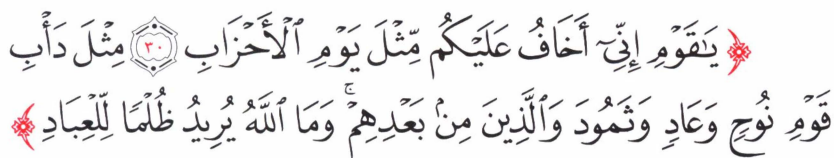 ﴿ يَٰقَوْمِ إِنِّىٓ أَخَافُ عَلَيْكُم مِّثْلَ يَوْمِ ٱلْأَحْزَابِ ٣٠ مِثْلَ دَأْبِ
قَوْمِ نُوحٍ وَعَادٍ وَثَمُودَ وَٱلَّذِينَ مِنۢ بَعْدِهِمْ ۚ وَمَا ٱللَّهُ يُرِيدُ ظُلْمًا لِّلْعِبَادِ ﴾